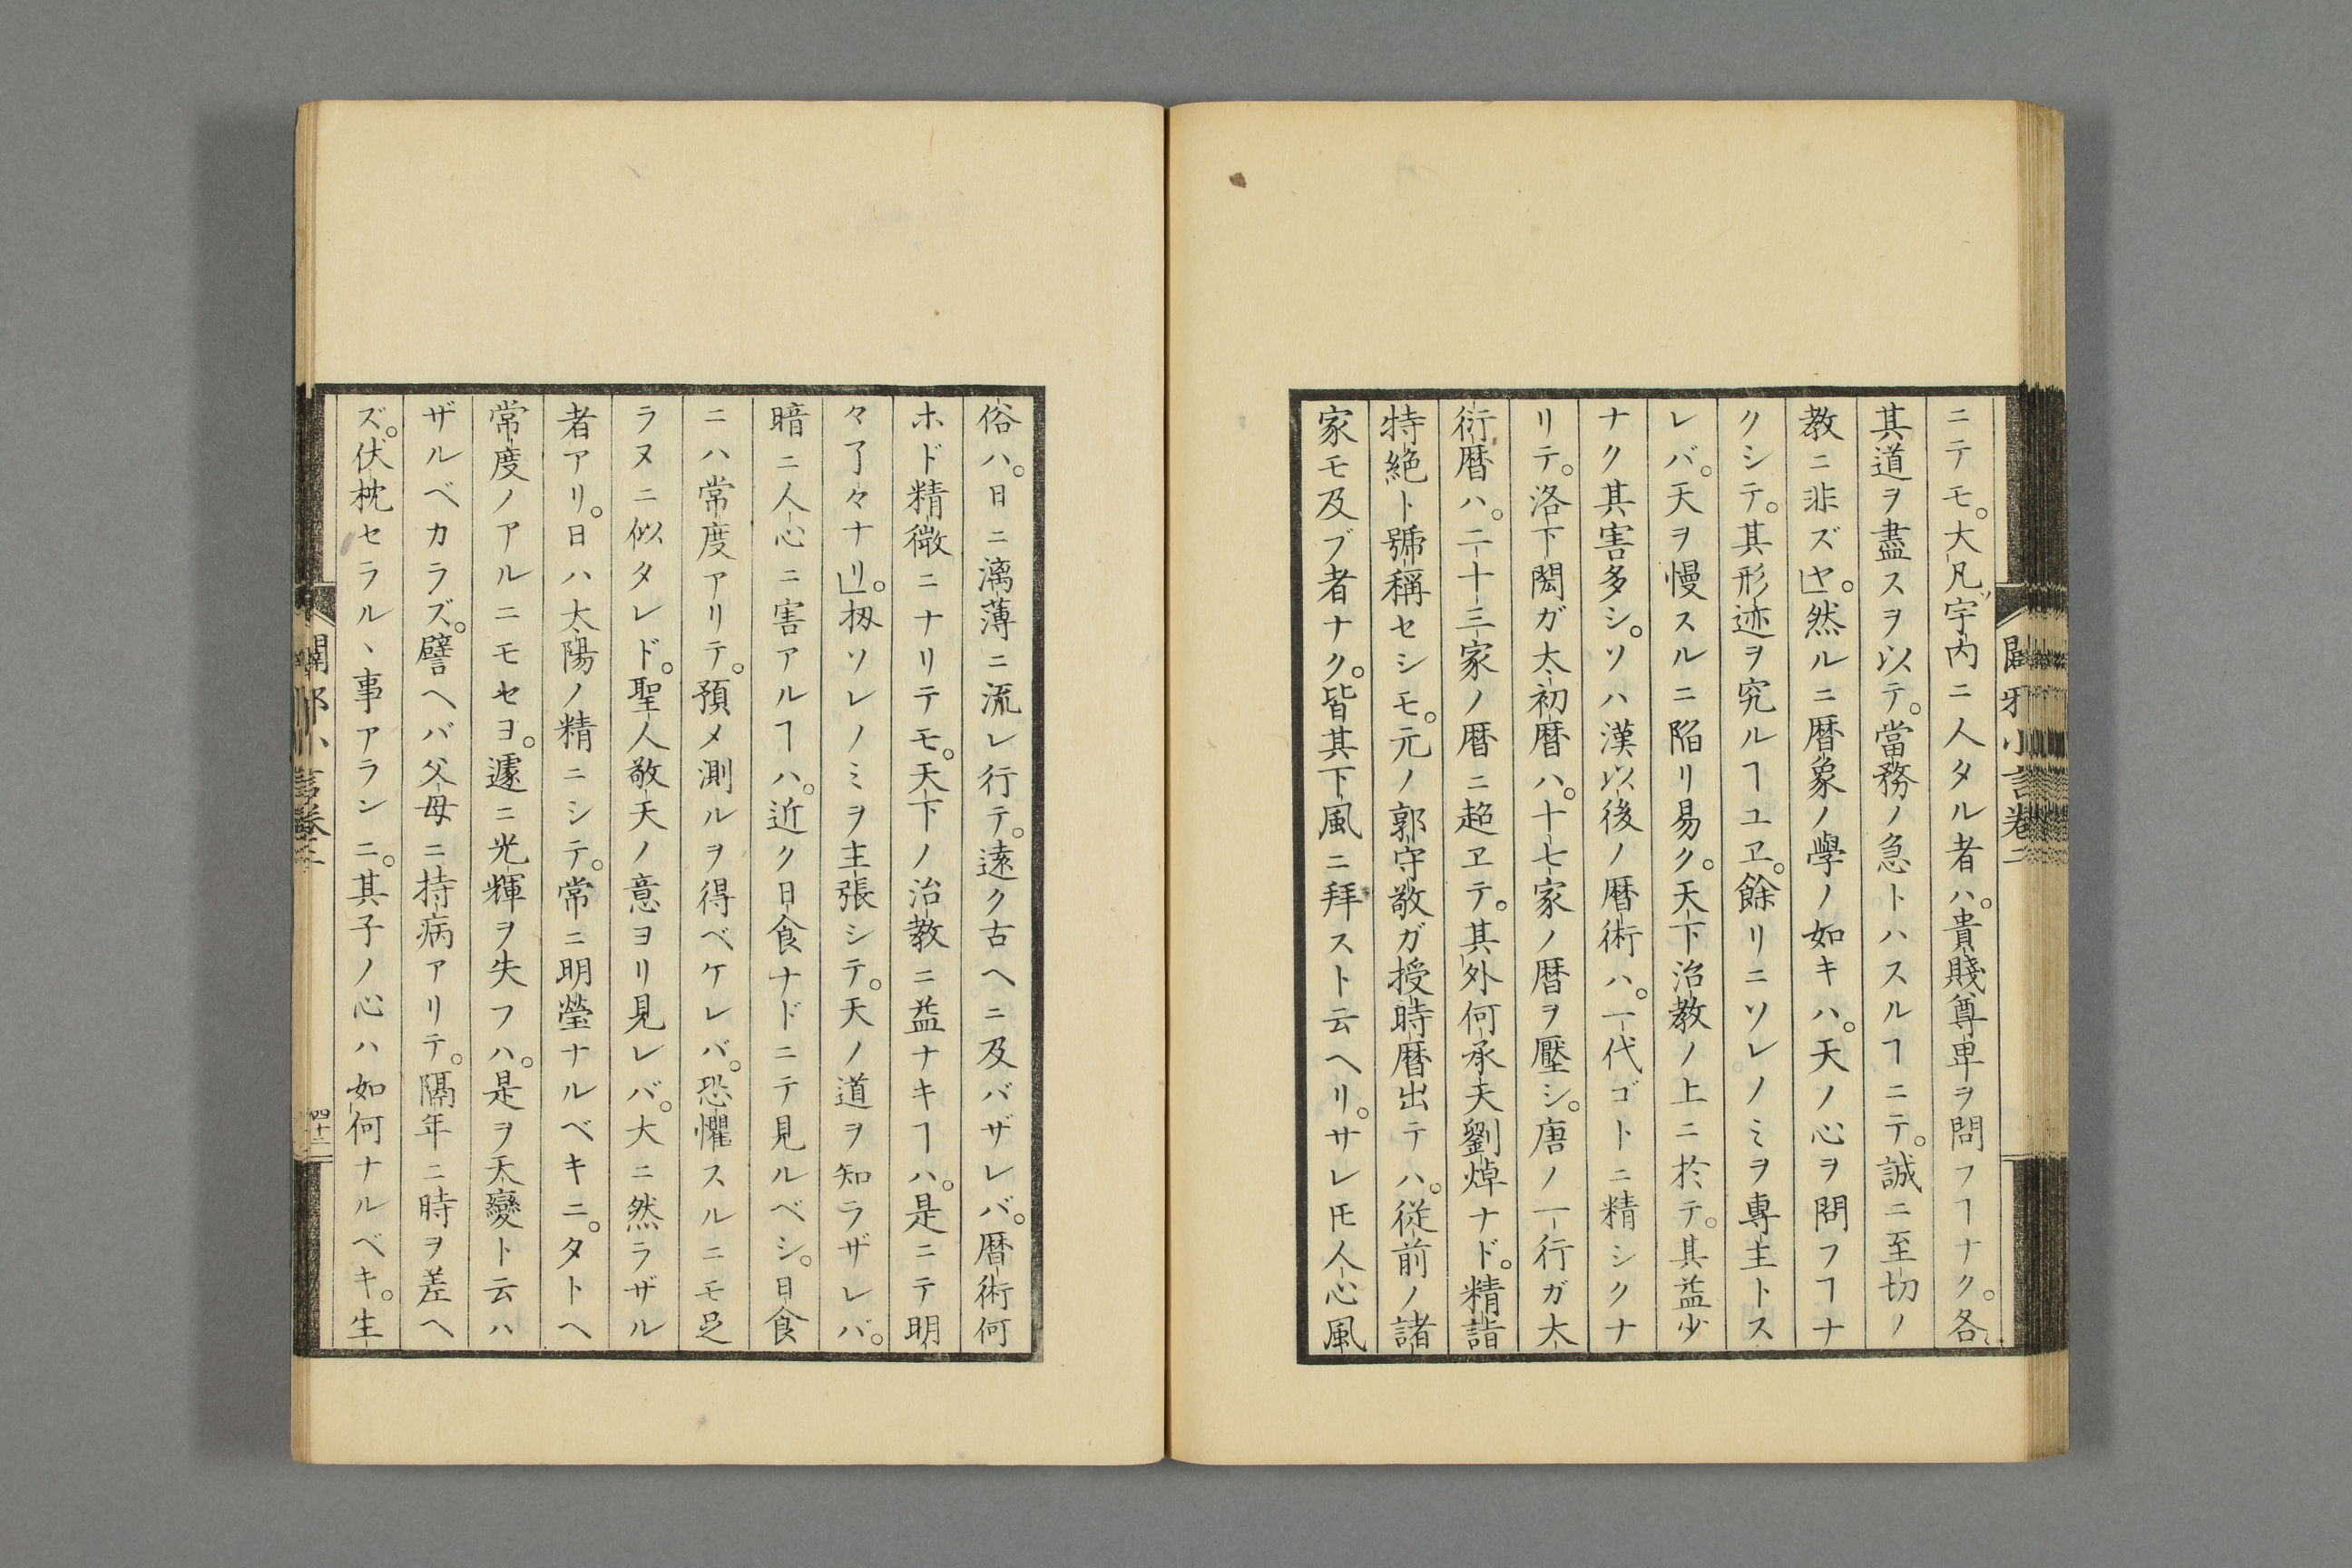 闢邪小言卷二
ニテモ。大凡宇内ニ人タル者ハ。貴賤尊卑ヲ問フヿナク。各〻
其道ヲ盡スヲ以テ。當務ノ急トハスルヿニテ。誠ニ至切ノ
教ニ非ズヤ。然ルニ暦象ノ學ノ如キハ。天ノ心ヲ問フヿナ
クシテ。其形迹ヲ究ルヿユヱ。餘リニソレノミヲ專主トス
レバ。天ヲ慢スルニ陷リ易ク。天下治教ノ上ニ於テ。其益少
ナク其害多シ。ソハ漢以後ノ暦術ハ。一代ゴトニ精シクナ
リテ。洛下閎ガ太初暦ハ。十七家ノ暦ヲ壓シ。唐ノ一行ガ大
衍暦ハ。二十三家ノ暦ニ超ヱテ。其外何承天劉焯ナド。精詣
特絶ト號稱セシモ。元ノ郭守敬ガ授時暦出テハ。従前ノ諸
家モ及ブ者ナク。皆其下風ニ拜スト云ヘリ。サレ𪜈人心風
俗ハ。日ニ漓薄ニ流レ行テ。遠ク古ヘニ及バザレバ。暦術何
ホド精微ニナリテモ。天下ノ治教ニ益ナキヿハ。是ニテ明
々了々ナリ。扨ソレノミヲ主張シテ。天ノ道ヲ知ラザレバ。
暗ニ人心ニ害アルヿハ。近ク日食ナドニテ見ルベシ。日食
ニハ常度アリテ。預メ測ルヲ得ベケレバ。恐懼スルニモ足
ラヌニ似タレド。聖人敬天ノ意ヨリ見レバ。大ニ然ラザル
者アリ。日ハ太陽ノ精ニシテ。常ニ明瑩ナルベキニ。タトヘ
常度ノアルニモセヨ。遽ニ光輝ヲ失フハ。是ヲ天變ト云ハ
ザルベカラズ。譬ヘバ父母ニ持病アリテ。隔年ニ時ヲ差ヘ
ズ。伏枕セラルヽ事アランニ。其子ノ心ハ如何ナルベキ。生
闢邪小言卷二
四十二